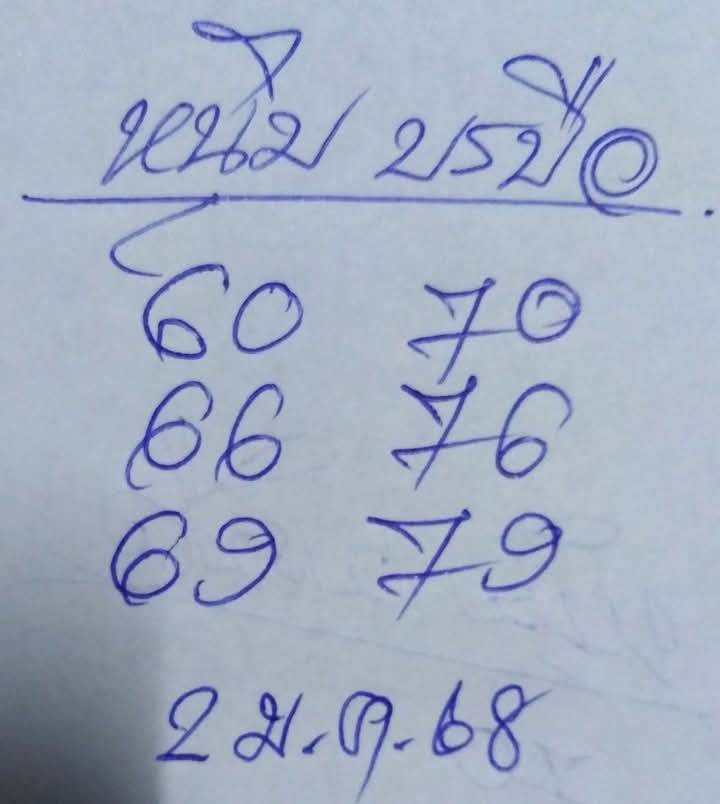 หนิม บรบือ
60 70
66 76
69 79
2 ม.ค. 68